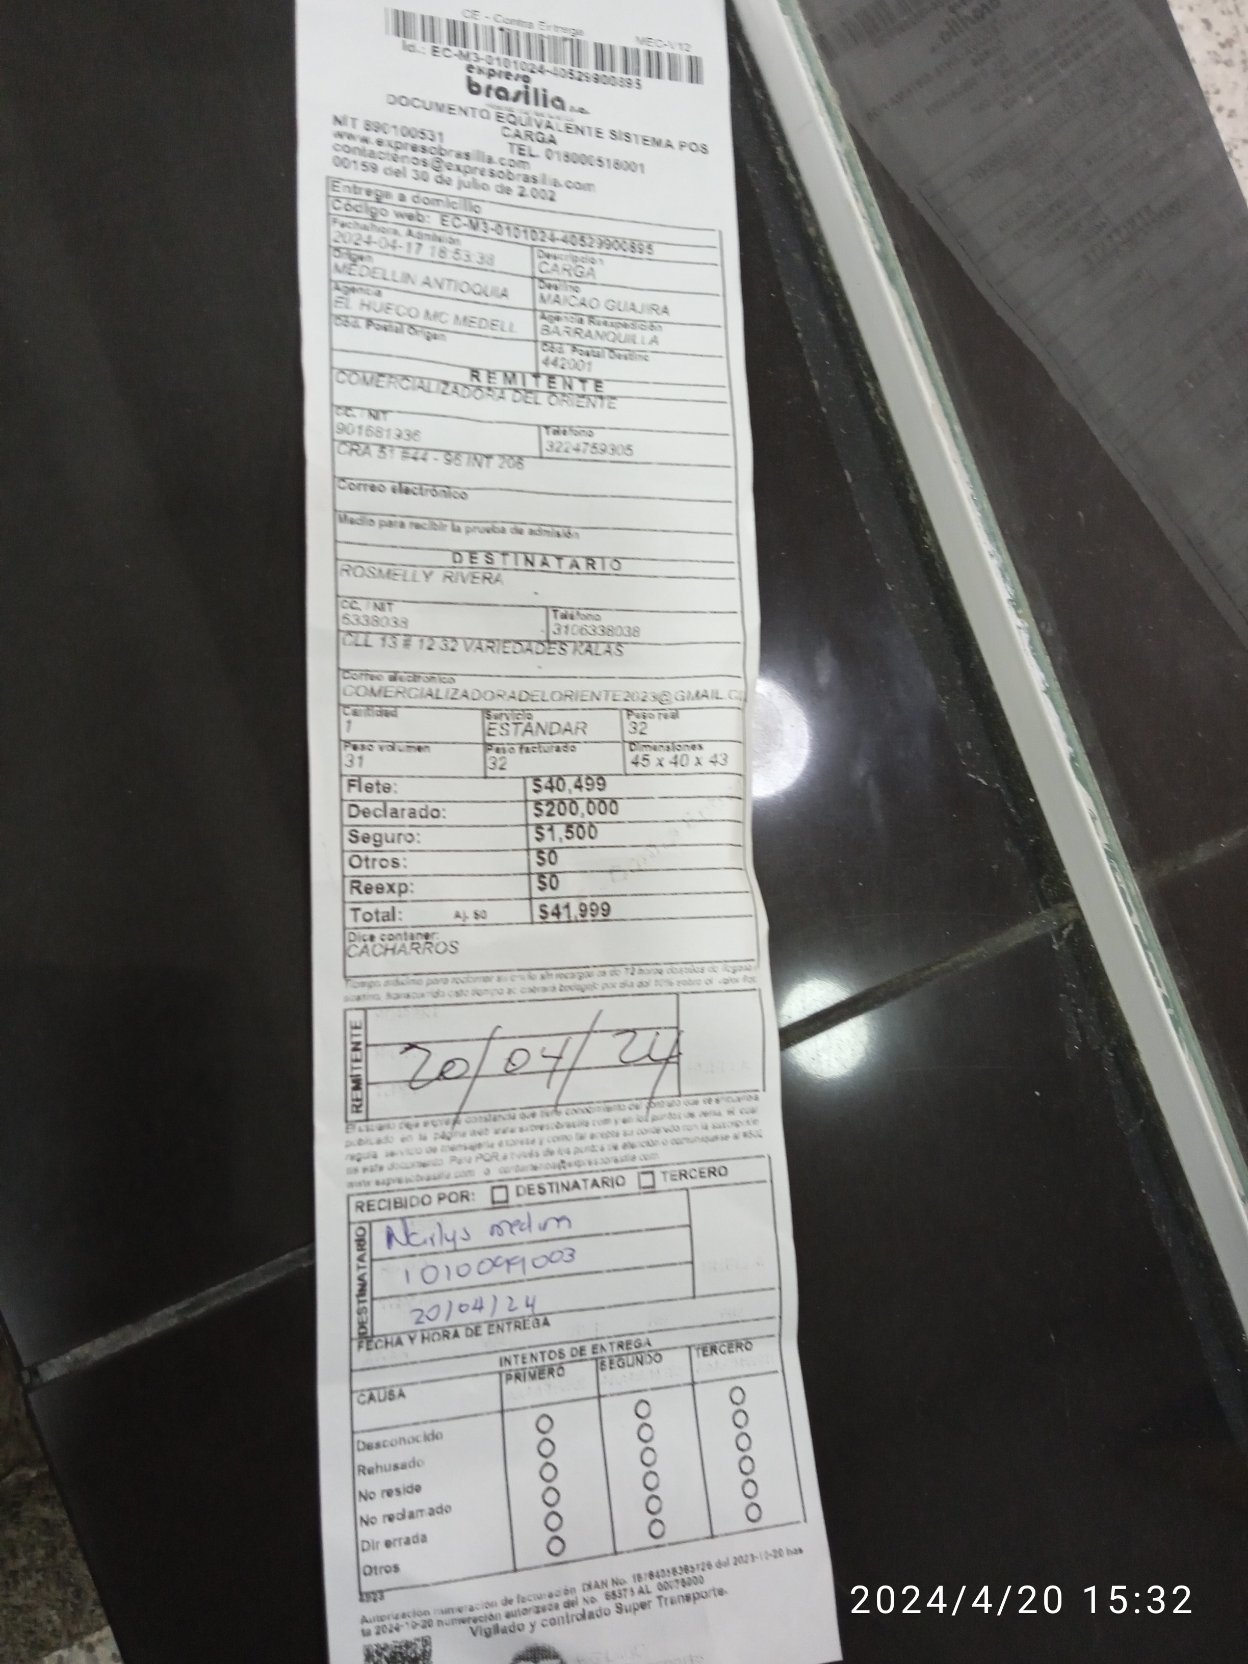 CE - Contra Entrega MEC-V12
Id.: EC-M3-0101024-40529900895
expreso
brasilia s.a.
DOCUMENTO EQUIVALENTE SISTEMA POS
CARGA
NIT 890100531 TEL. 018000518001
www.expresobrasilia.com
contactenos@expresobrasilia.com
00159 del 30 de julio de 2.002
Entrega a domicilio
Código web: EC-M3-0101024-40529900895
Fecha/hora, Admisión Descripción
2024-04-17 18:53:38 CARGA
Origen Destino
MEDELLIN ANTIOQUIA MAICAO GUAJIRA
Agencia Agencia Reexpedición
EL HUECO MC MEDELL BARRANQUILLA
Cód. Postal Origen Cód. Postal Destino
442001
REMITENTE
COMERCIALIZADORA DEL ORIENTE
CC. / NIT Teléfono
901681936 3224759305
CRA 51 #44 - 96 INT 206
Correo electrónico
Medio para recibir la prueba de admisión
DESTINATARIO
ROSMELLY RIVERA
CC. / NIT Teléfono
6338038 3106338038
CLL 13 # 12 32 VARIEDADES KALAS
Correo electronico
COMERCIALIZADORADELORIENTE2023@GMAIL.C
Cantidad Servicio Peso real
1 ESTANDAR 32
Peso volumen Peso facturado Dimensiones
31 32 45 x 40 x 43
Flete: $40,499
Declarado: $200,000
Seguro: $1,500
Otros: $0
Reexp: $0
Total: Aj. $0 $41,999
Dice contener:
CACHARROS
REMITENTE
20/04/24
El usuario deja expresa constancia que tiene conocimiento del contrato que se encuentra
publicado en la página web www.expresobrasilia.com y en los puntos de venta, el cual
regula servicio de mensajería expresa y como tal acepta su contenido con la suscripción
de este documento. Para PQR a través de los puntos de atención o comuníquese al
www.expresobrasilia.com o contactenos@expresobrasilia.com
RECIBIDO POR: DESTINATARIO TERCERO
DESTINATARIO
Narlys medina
1010099003
20/04/24
FECHA Y HORA DE ENTREGA
INTENTOS DE ENTREGA
CAUSA PRIMERO SEGUNDO TERCERO
Desconocido
Rehusado
No reside
No reclamado
Dir errada
Otros
Autorización numeración de facturación DIAN No. del 2023-10-20 has
ta 2024-10-20 numeración autorizada del No. 65371 AL 00075000
Vigilado y controlado Super Transporte.
2024/4/20 15:32